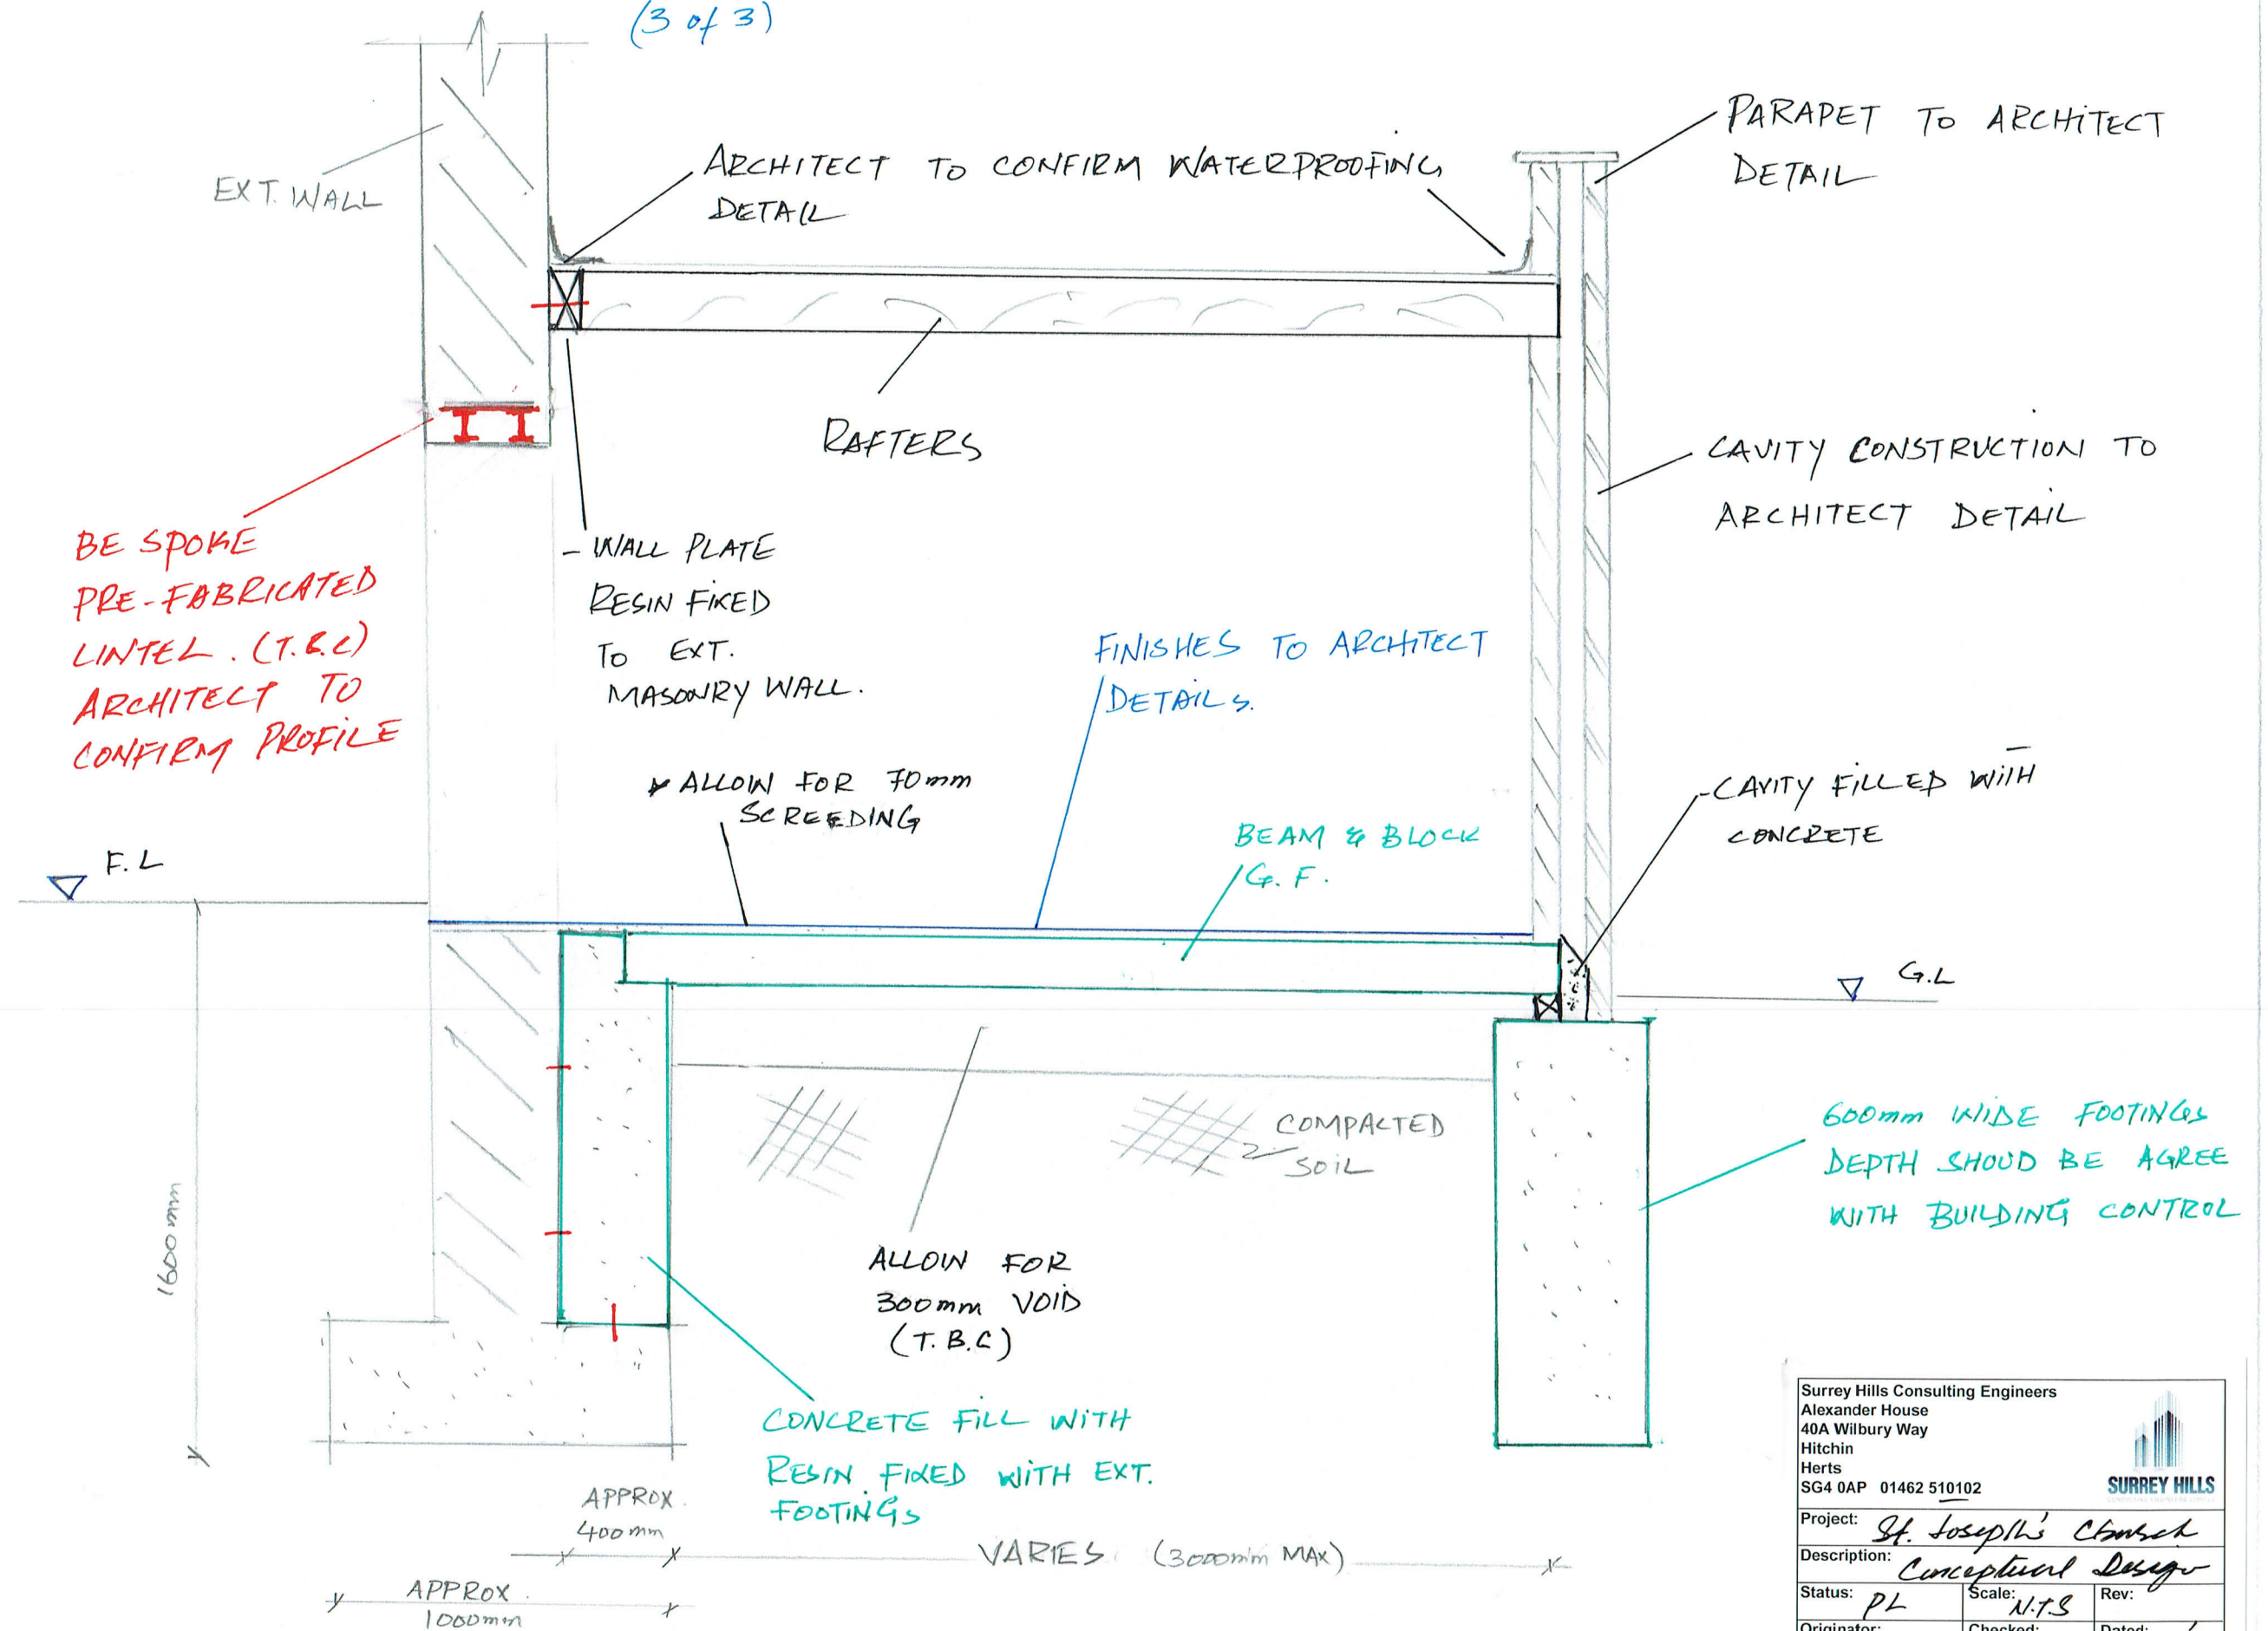 (3 of 3)
EXT. WALL
ARCHITECT TO CONFIRM WATERPROOFING
DETAIL
PARAPET TO ARCHITECT
DETAIL
RAFTERS
CAVITY CONSTRUCTION TO
ARCHITECT DETAIL
BE SPOKE
PRE-FABRICATED
LINTEL. (T.B.C)
ARCHITECT TO
CONFIRM PROFILE
- WALL PLATE
RESIN FIXED
TO EXT.
MASONRY WALL.
FINISHES TO ARCHITECT
DETAILS.
ALLOW FOR 70mm
SCREEDING
BEAM & BLOCK
G.F.
- CAVITY FILLED WITH
CONCRETE
F.L
G.L
1600mm
COMPACTED
SOIL
600mm WIDE FOOTINGS
DEPTH SHOUD BE AGREE
WITH BUILDING CONTROL
ALLOW FOR
300mm VOID
(T.B.C)
CONCRETE FILL WITH
RESIN FIXED WITH EXT.
FOOTINGS
APPROX.
400mm
VARIES (3000mm MAX)
APPROX.
1000mm
Surrey Hills Consulting Engineers
Alexander House
40A Wilbury Way
Hitchin
Herts
SG4 0AP 01462 510102
SURREY HILLS
Project: St. Joseph's Church
Description: Conceptual Design
Status: PL
Scale: N.T.S
Rev:
Originator:
Checked:
Dated: